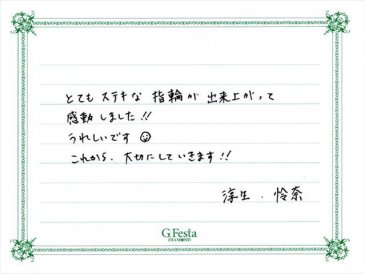 とても ステキな 指輪が 出来上がって
感動しました!!
うれしいです
これから、大切にしていきます!!
淳生 . 怜奈
G.Festa
DIAMOND